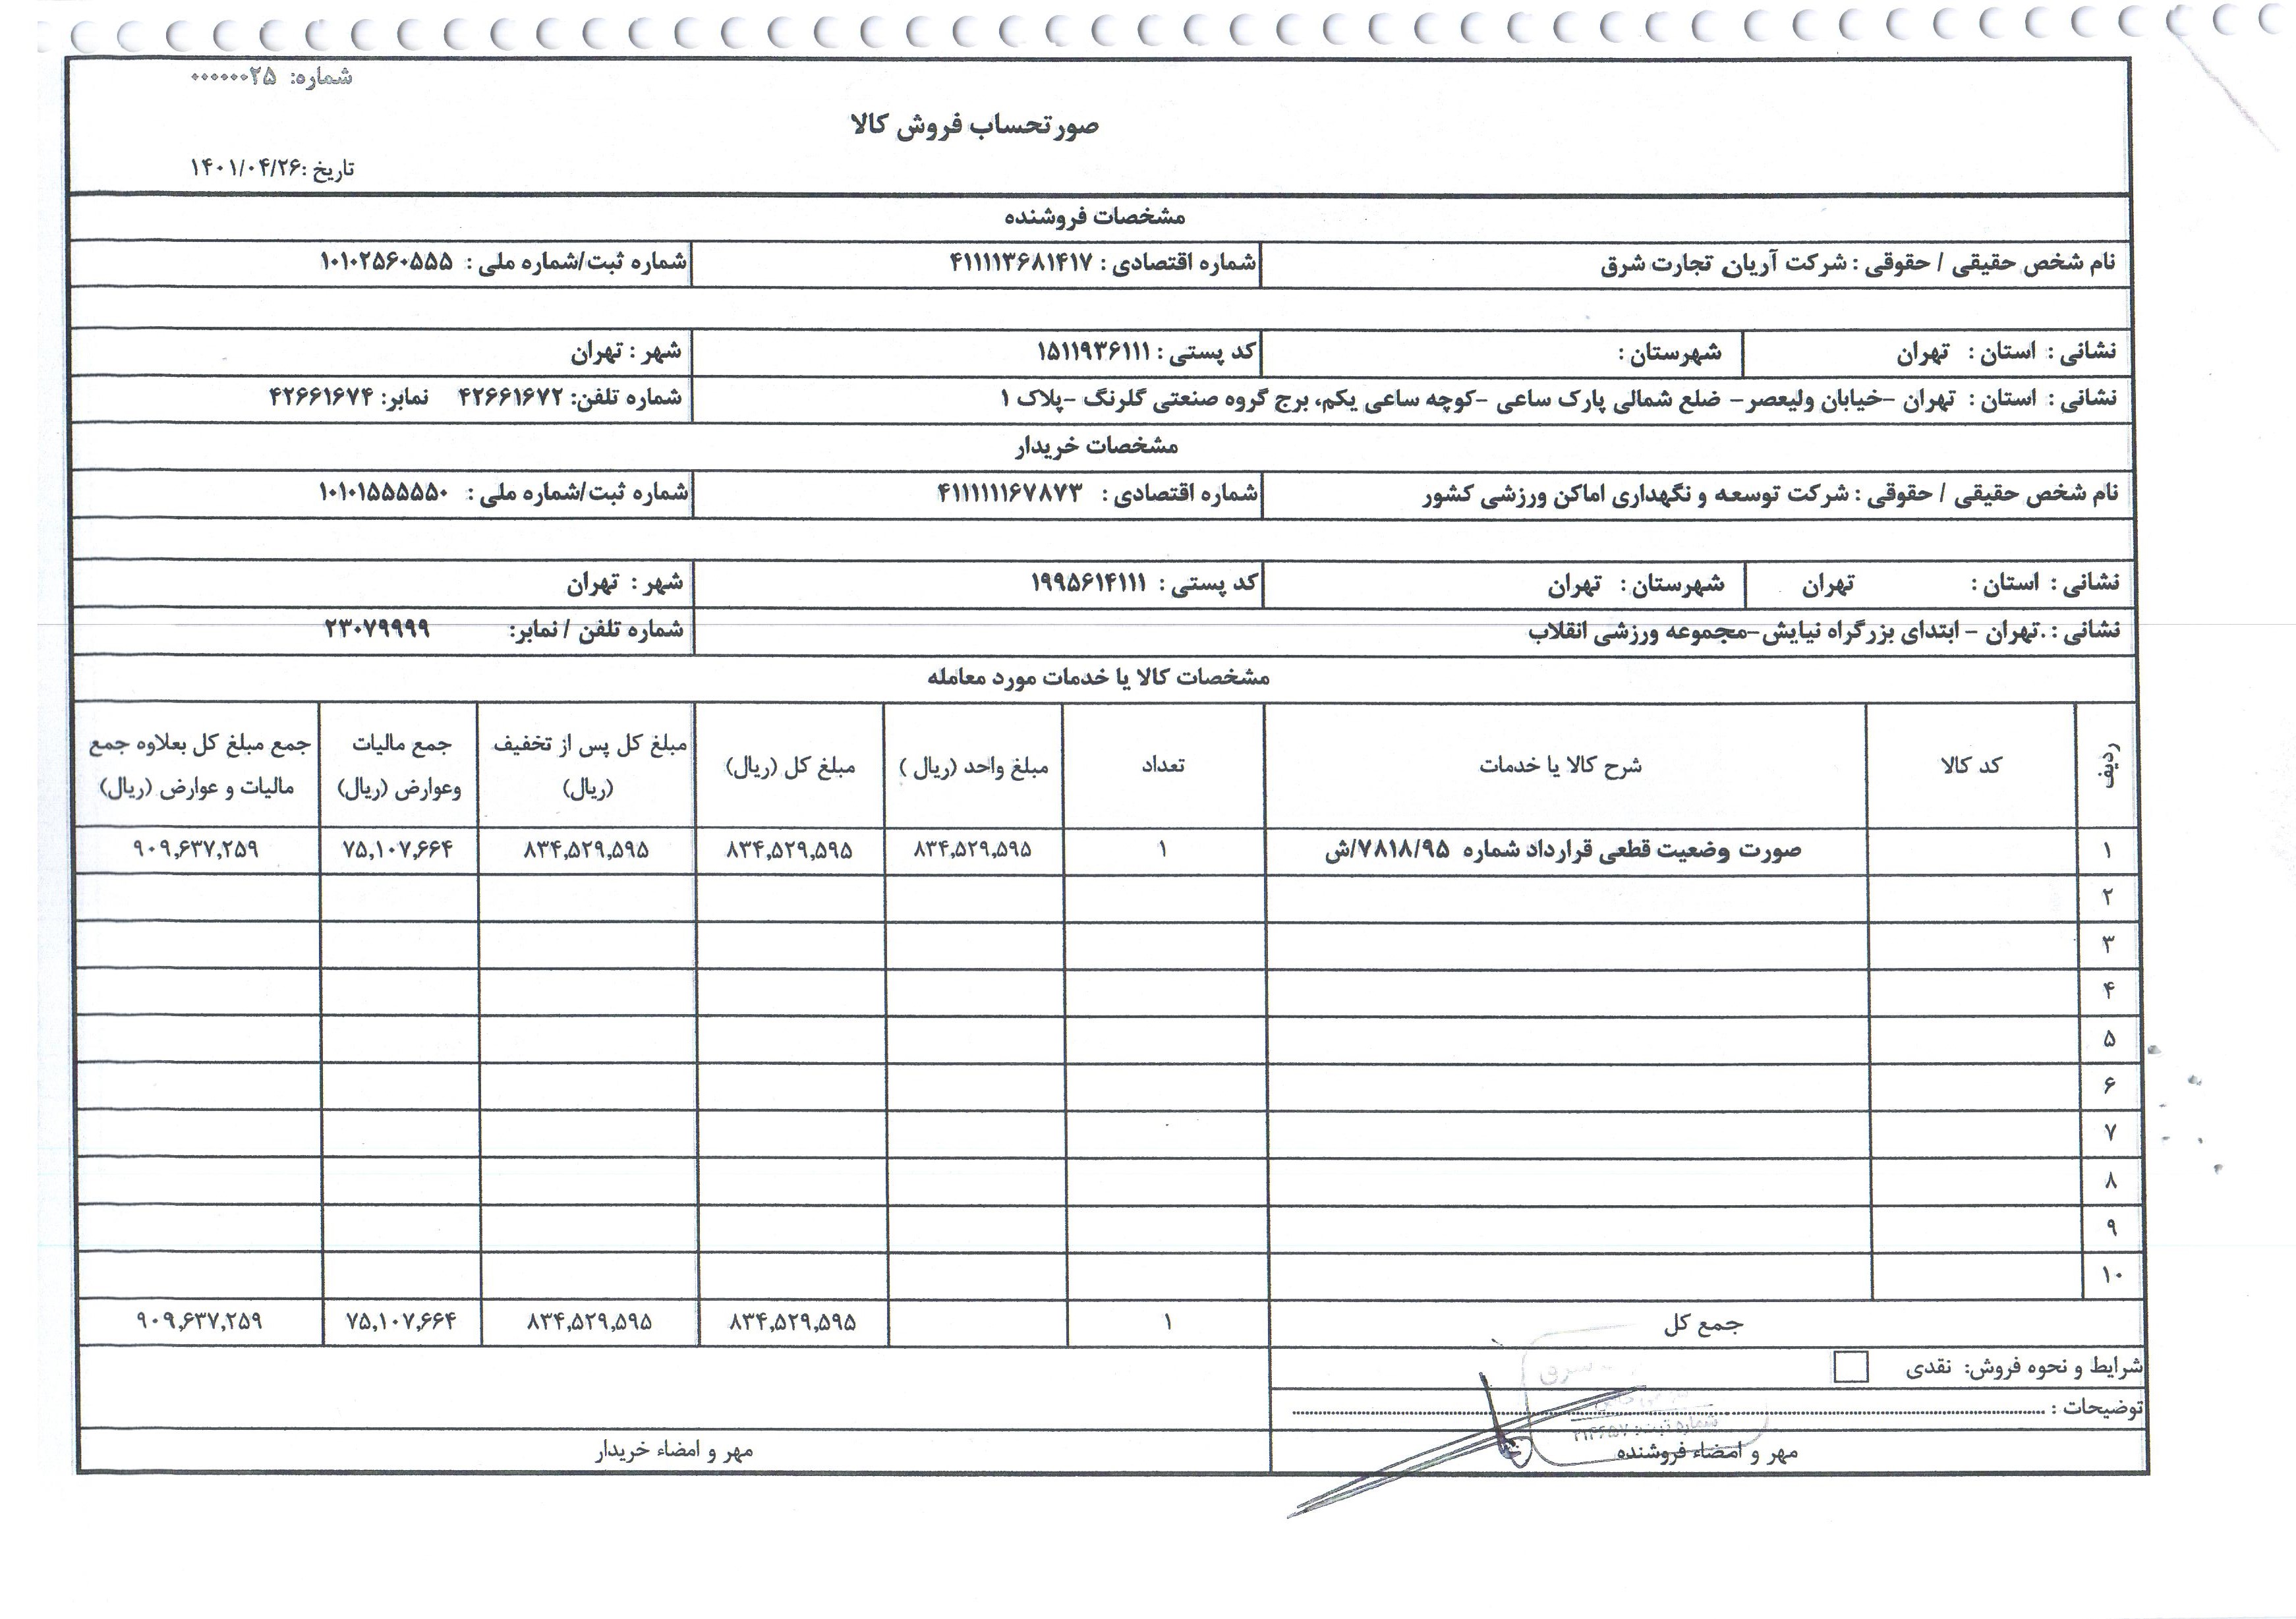 شماره: ۰۰۰۰۰۰۲۵
صورتحساب فروش کالا
تاریخ :۱۴۰۱/۰۴/۲۶
مشخصات فروشنده
نام شخص حقیقی / حقوقی : شرکت آریان تجارت شرق شماره اقتصادی : ۴۱۱۱۱۳۶۸۱۴۱۷ شماره ثبت/شماره ملی : ۱۰۱۰۲۵۶۰۵۵۵
نشانی : استان : تهران شهرستان : کد پستی : ۱۵۱۱۹۳۶۱۱۱ شهر : تهران
نشانی : استان : تهران -خیابان ولیعصر- ضلع شمالی پارک ساعی -کوچه ساعی یکم، برج گروه صنعتی گلرنگ -پلاک ۱ شماره تلفن: ۴۲۶۶۱۶۷۲ نمابر: ۴۲۶۶۱۶۷۴
مشخصات خریدار
نام شخص حقیقی / حقوقی : شرکت توسعه و نگهداری اماکن ورزشی کشور شماره اقتصادی : ۴۱۱۱۱۱۱۶۷۸۷۳ شماره ثبت/شماره ملی : ۱۰۱۰۱۵۵۵۵۵۰
نشانی : استان : تهران شهرستان : تهران کد پستی : ۱۹۹۵۶۱۴۱۱۱ شهر : تهران
نشانی : .تهران - ابتدای بزرگراه نیایش-مجموعه ورزشی انقلاب شماره تلفن / نمابر: ۲۳۰۷۹۹۹۹
مشخصات کالا یا خدمات مورد معامله
ردیف کد کالا شرح کالا یا خدمات تعداد مبلغ واحد (ریال ) مبلغ کل (ریال) مبلغ کل پس از تخفیف (ریال) جمع مالیات وعوارض (ریال) جمع مبلغ کل بعلاوه جمع مالیات و عوارض (ریال)
۱ صورت وضعیت قطعی قرارداد شماره ۷۸۱۸/۹۵/ش ۱ ۸۳۴,۵۲۹,۵۹۵ ۸۳۴,۵۲۹,۵۹۵ ۸۳۴,۵۲۹,۵۹۵ ۷۵,۱۰۷,۶۶۴ ۹۰۹,۶۳۷,۲۵۹
۲
۳
۴
۵
۶
۷
۸
۹
۱۰
جمع کل ۱ ۸۳۴,۵۲۹,۵۹۵ ۸۳۴,۵۲۹,۵۹۵ ۷۵,۱۰۷,۶۶۴ ۹۰۹,۶۳۷,۲۵۹
شرایط و نحوه فروش: نقدی
توضیحات :
شماره ثبت:
مهر و امضاء فروشنده مهر و امضاء خریدار